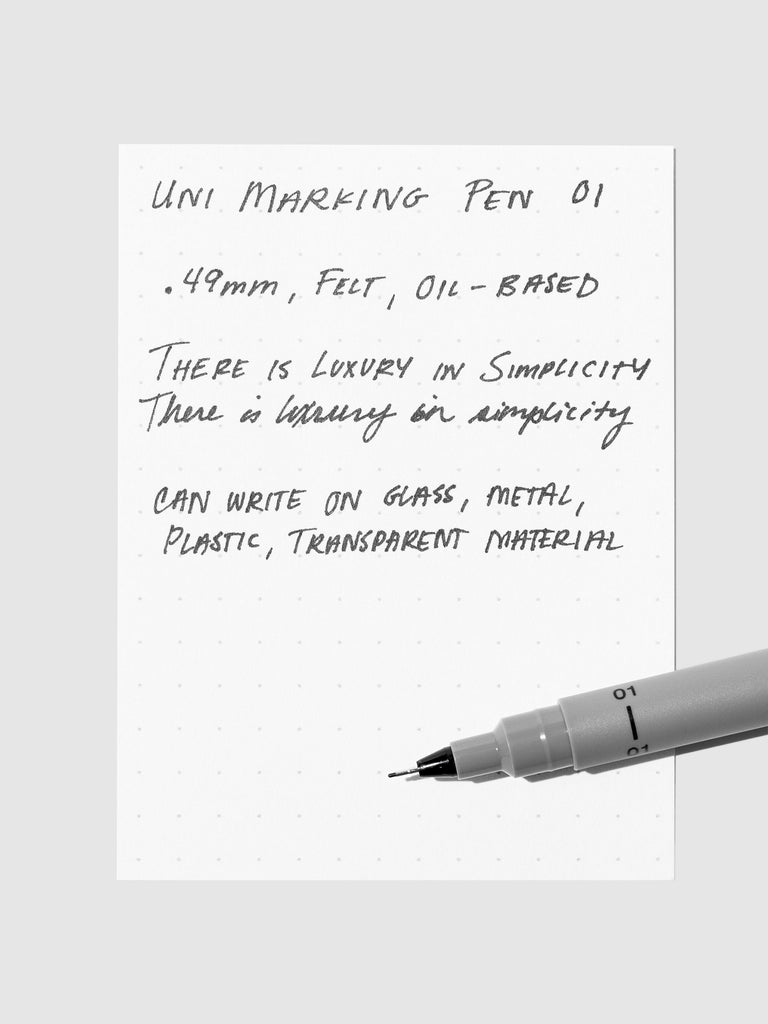 UNI MARKING PEN 01
.49mm, FELT, OIL-BASED
THERE IS LUXURY IN SIMPLICITY
There is luxury in simplicity
CAN WRITE ON GLASS, METAL,
PLASTIC, TRANSPARENT MATERIAL
01
01